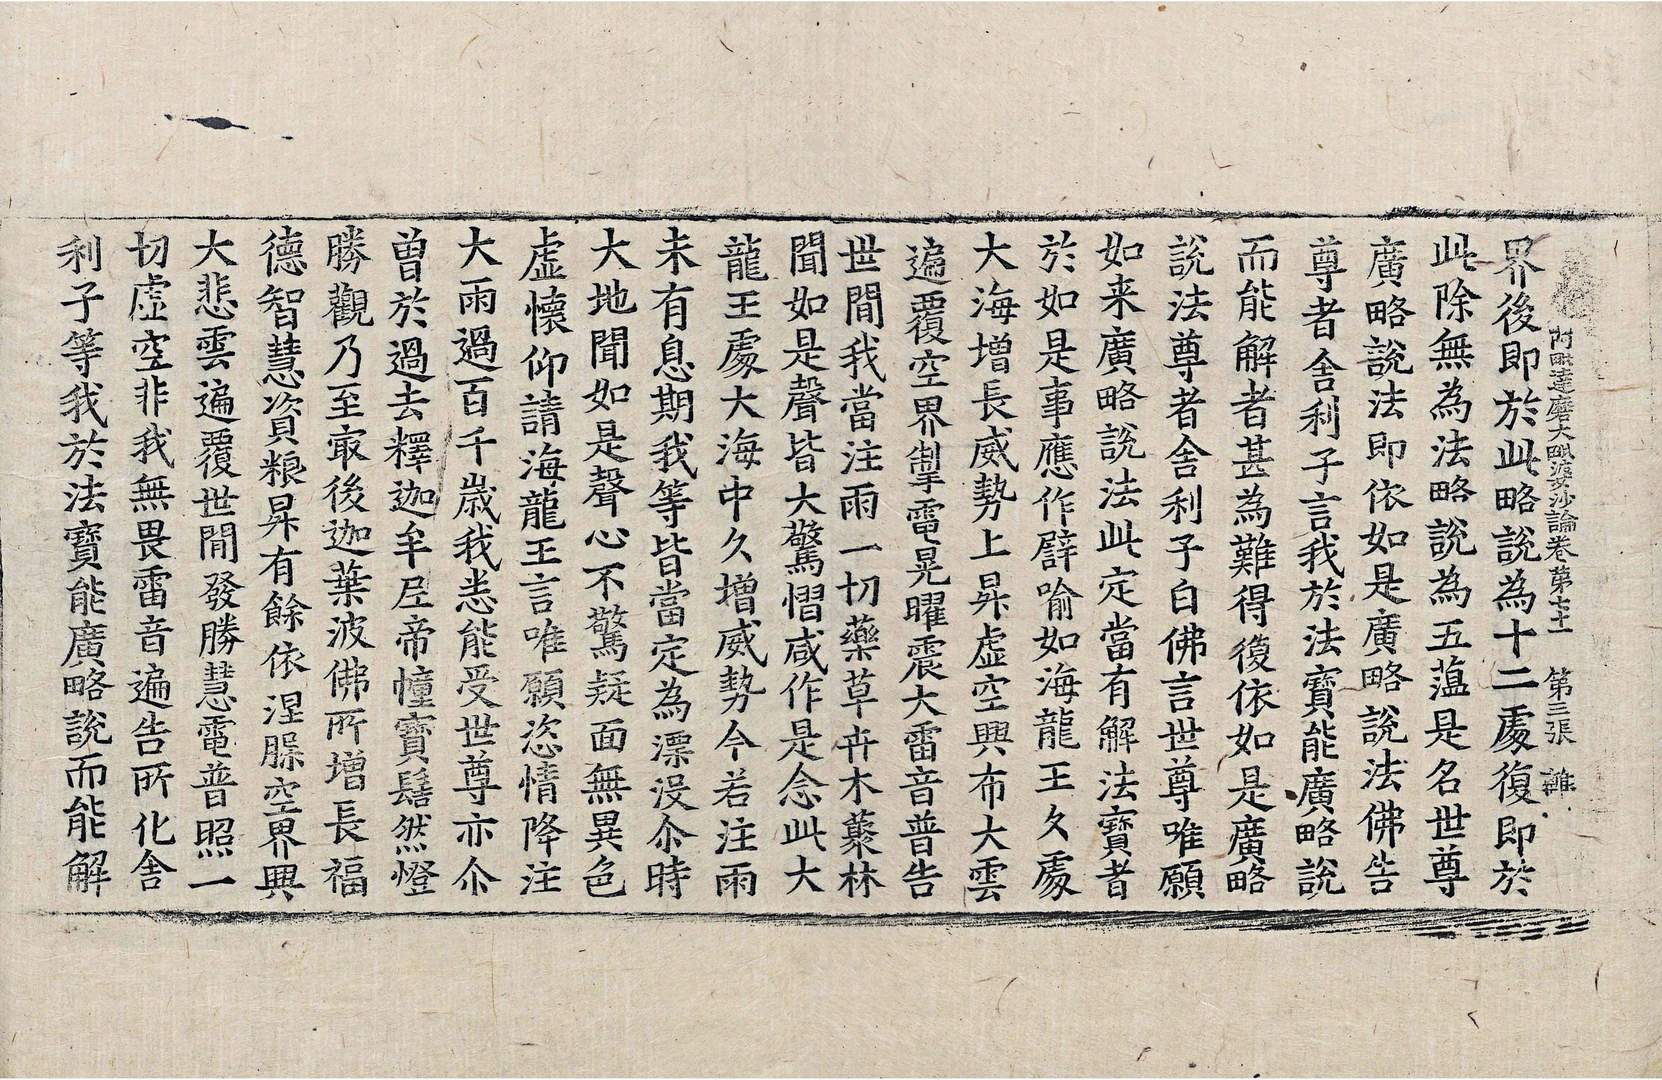 阿毗達磨大毗婆沙論卷第七十一 第三張 雜
界後即於此略說為十二處復即於
此除無為法略說為五蕰是名世尊
廣略說法即依如是廣略說法佛告
尊者舍利子言我於法寶能廣略說
而能解者甚為難得復依如是廣略
說法尊者舍利子白佛言世尊唯願
如来廣略說法此定當有解法寶者
於如是事應作譬喻如海龍王久處
大海增長威勢上昇虛空興布大雲
遍覆空界掣電晃曜震大雷音普告
世間我當注雨一切藥草卉木藂林
聞如是聲皆大驚慴咸作是念此大
龍王處大海中久增威勢今若注雨
未有息期我等皆當定為漂没尒時
大地聞如是聲心不驚疑面無異色
虛懷仰請海龍王言唯願恣情降注
大雨過百千歳我悉能受世尊亦尒
曾於過去釋迦牟尼帝幢寶髻然燈
勝觀乃至㝡後迦葉波佛所增長福
德智慧資粮昇有餘依涅槃空界興
大悲雲遍覆世間發勝慧電普照一
切虛空非我無畏雷音遍告所化舍
利子等我於法寶能廣略說而能解